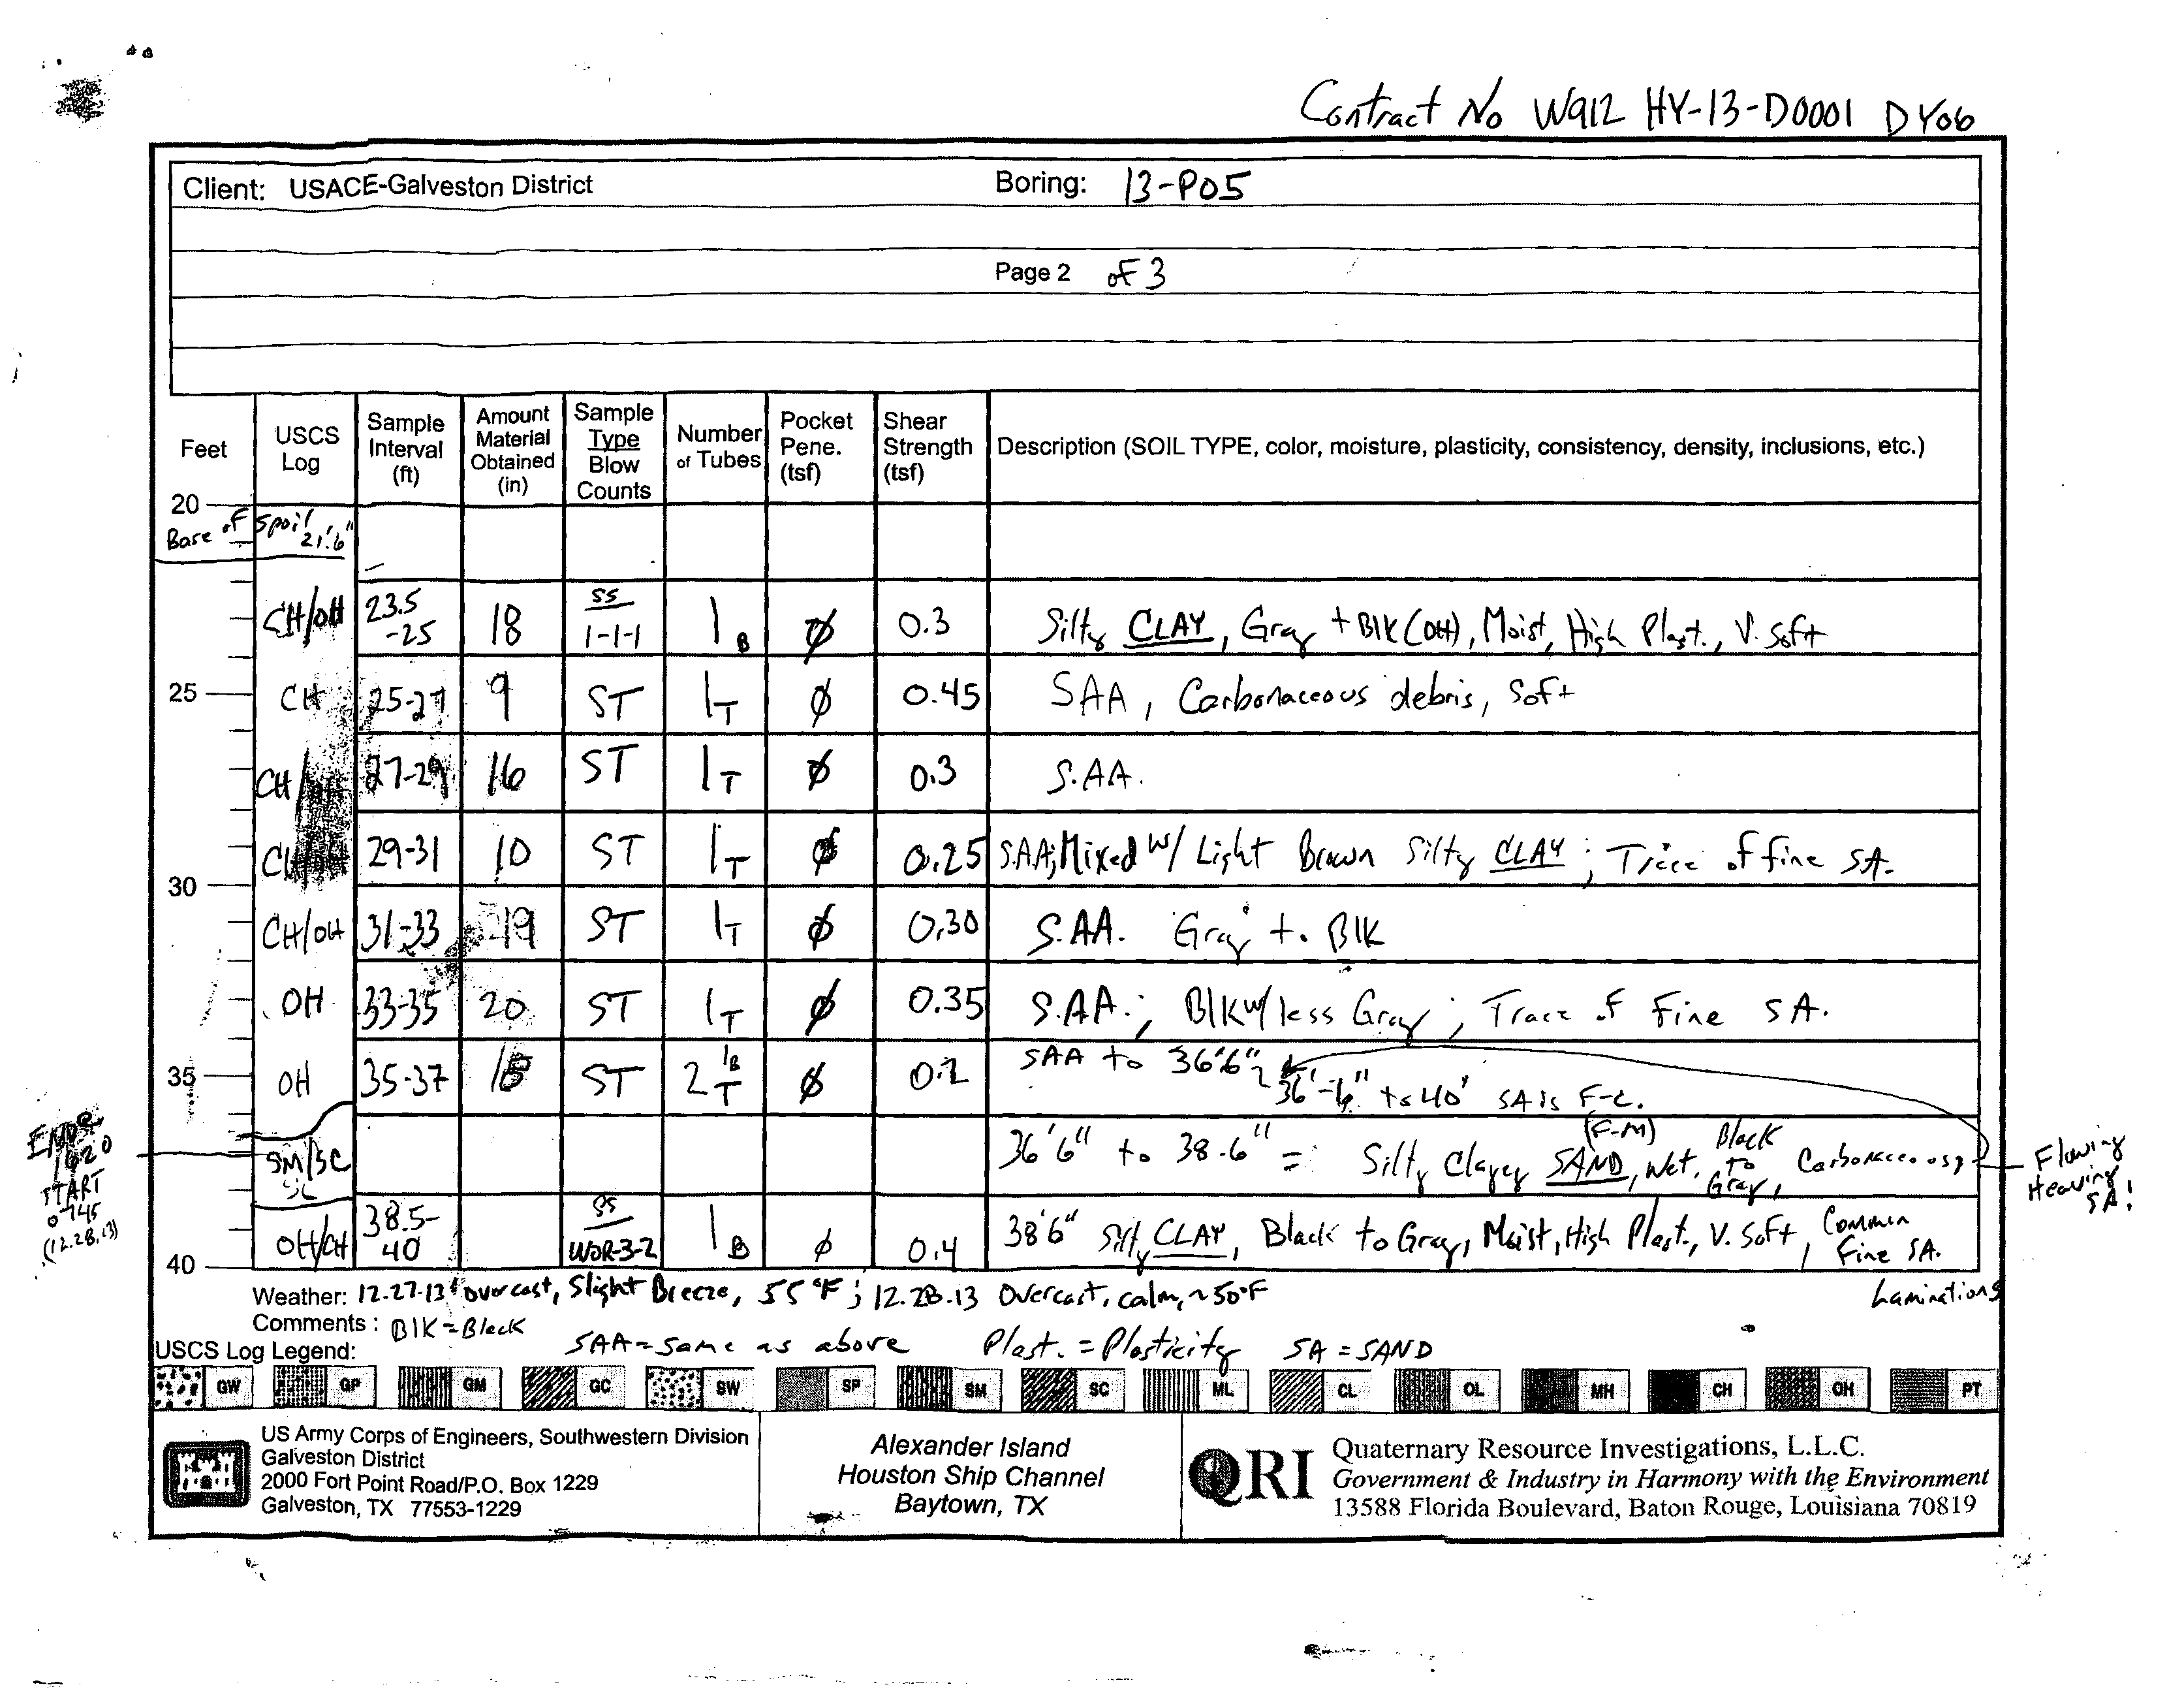 Contract No W912 HY-13-D0001 DY06
Client: USACE-Galveston District Boring: 13-P05
Page 2 of 3
Feet USCS Log Sample Interval (ft) Amount Material Obtained (in) Sample Type Blow Counts Number of Tubes Pocket Pene. (tsf) Shear Strength (tsf) Description (SOIL TYPE, color, moisture, plasticity, consistency, density, inclusions, etc.)
20
Base of Spoil 21'6"
CH/OH 23.5-25 18 SS 1-1-1 1B Ø 0.3 Silty CLAY, Gray + Blk (OH), Moist, High Plast., V. Soft
25 CH 25-27 9 ST 1T Ø 0.45 SAA, Carbonaceous debris, Soft
CH/ 27-29 16 ST 1T Ø 0.3 S.AA.
29-31 10 ST 1T Ø 0.25 S.AA; Mixed w/ Light Brown Silty CLAY; Trace of fine SA.
30
CH/OH 31-33 19 ST 1T Ø 0.30 S.AA. Gray to Blk
OH 33-35 20 ST 1T Ø 0.35 S.AA.; Blk w/ less Gray; Trace of Fine SA.
35 OH 35-37 ST 2 1B T Ø 0.2 SAA to 36'6" 36'-6" to 40' SA is F-C.
SM/SC 36'6" to 38-6" = Silty Clayey SAND (F-M), Wet, Black to Gray, Carbonaceous, Flowing Heaving SA!
ENDS 1620 START 0745 (12.28.13)
OH/CH 38.5-40 SS WOR-3-2 1B Ø 0.4 38'6" Silty CLAY, Black to Gray, Moist, High Plast., V. Soft, Common Fine SA. Laminations
40
Weather: 12.27.13 overcast, Slight Breeze, 55 °F; 12.28.13 Overcast, calm, ~50°F
Comments: Blk = Black SAA = Same as above Plast. = Plasticity SA = SAND
USCS Log Legend:
GW GP GM GC SW SP SM SC ML CL OL MH CH OH PT
US Army Corps of Engineers, Southwestern Division
Galveston District
2000 Fort Point Road/P.O. Box 1229
Galveston, TX 77553-1229
Alexander Island
Houston Ship Channel
Baytown, TX
QRI
Quaternary Resource Investigations, L.L.C.
Government & Industry in Harmony with the Environment
13588 Florida Boulevard, Baton Rouge, Louisiana 70819